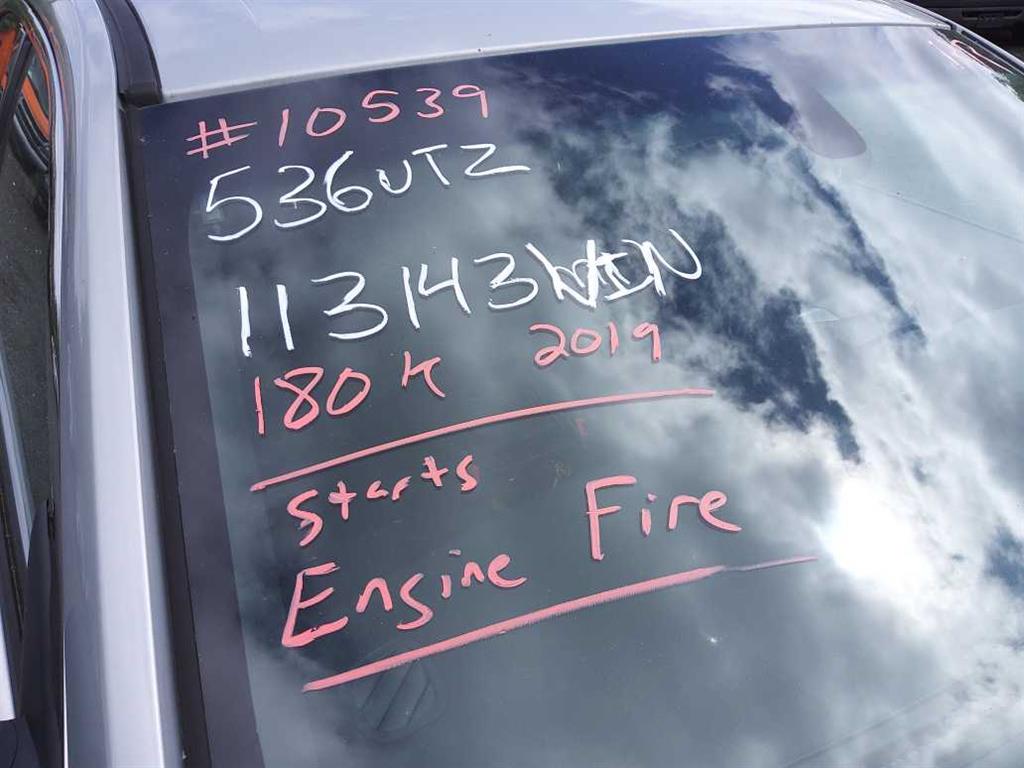 #10539
536UTZ
113143 VIN
180K 2019
Starts
Engine Fire